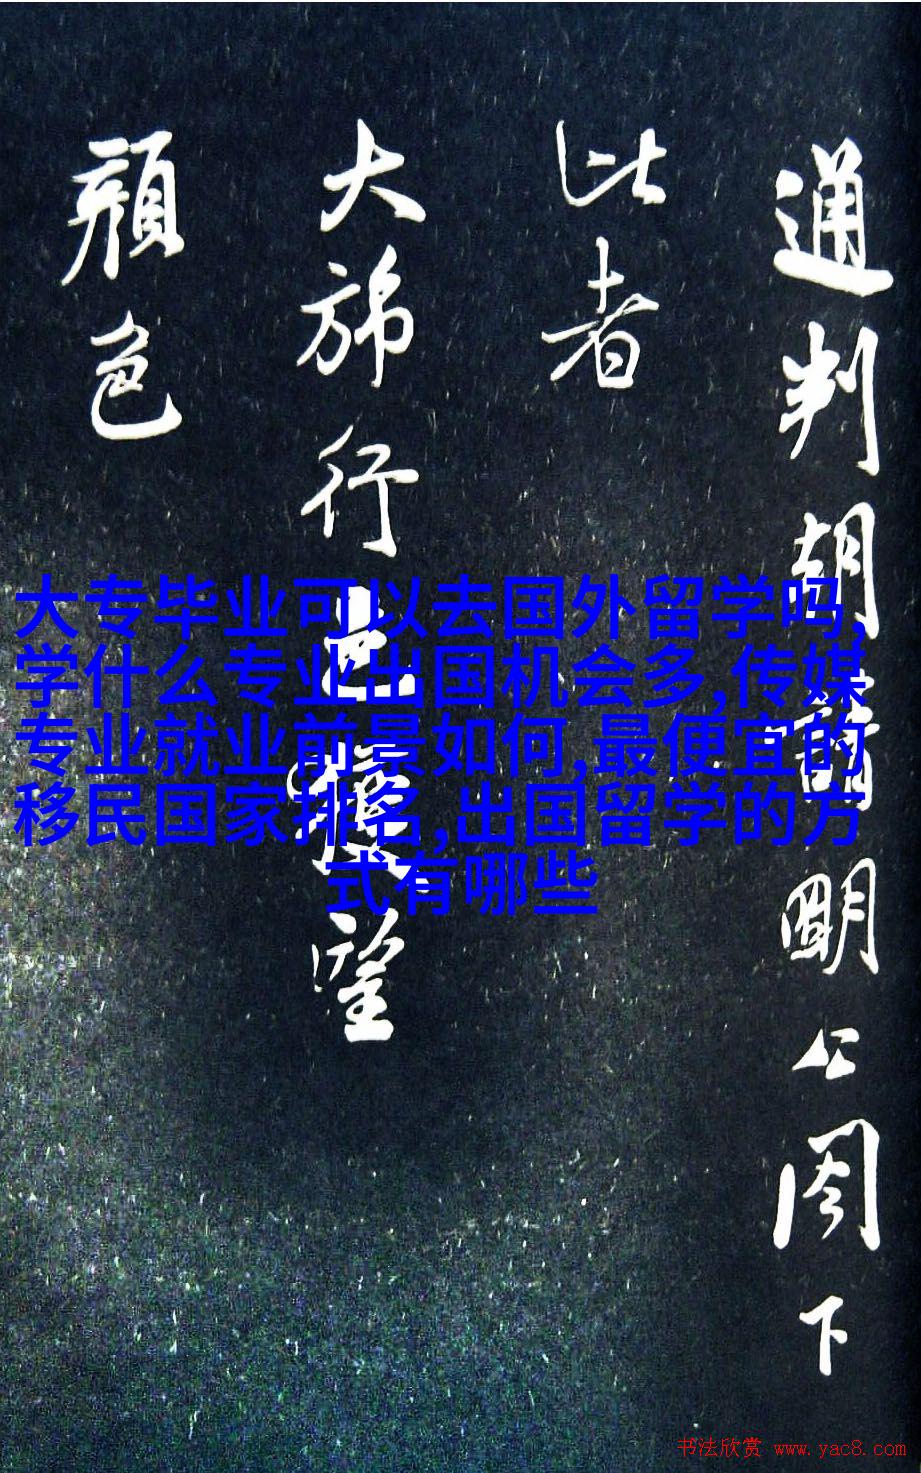 通判胡明公閣下
此者
大旆行望
顏色
大专毕业可以去国外留学吗,
学什么专业出国机会多,传媒
专业就业前景如何,最便宜的
移民国家排名,出国留学的方
式有哪些
书法欣赏 www.yac8.com